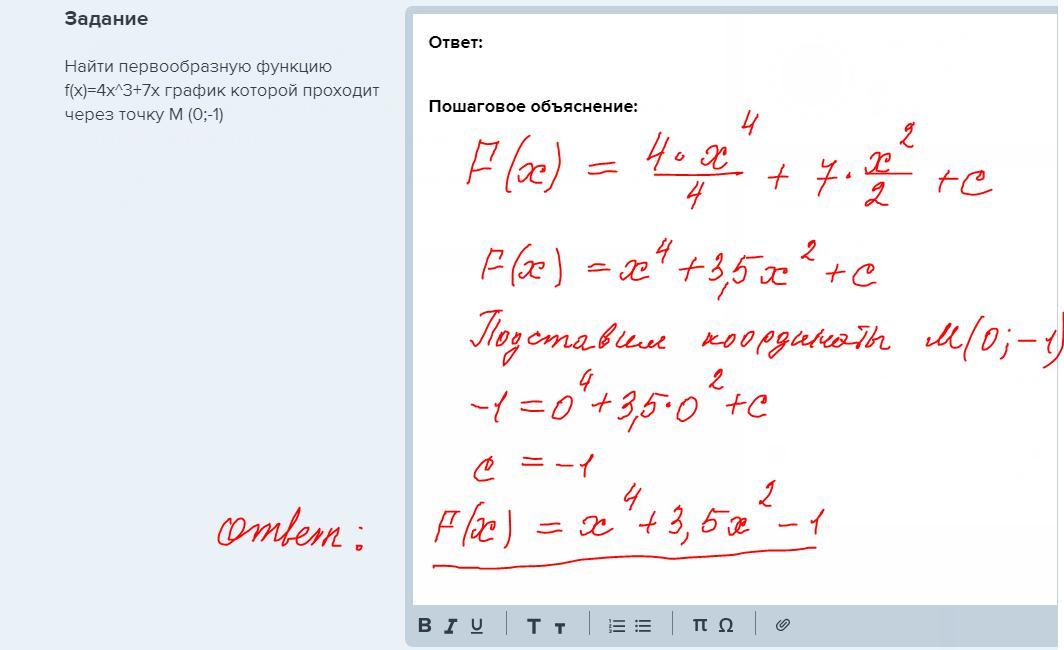 Задание
Найти первообразную функцию
f(x)=4x^3+7x график которой проходит
через точку М (0;-1)
Ответ:
Пошаговое объяснение:
F(x) = 4·x⁴/4 + 7·x²/2 + c
F(x) = x⁴ + 3,5x² + c
Подставим координаты M(0;-1)
-1 = 0⁴ + 3,5·0² + c
c = -1
Ответ: F(x) = x⁴ + 3,5x² - 1
B I U T т π Ω